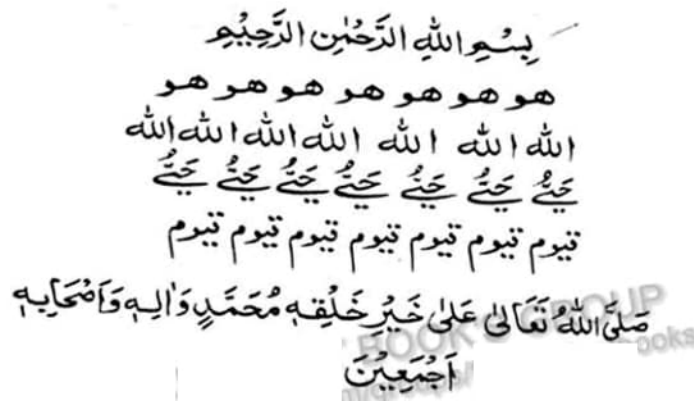 بِسْمِ اللهِ الرَّحْمٰنِ الرَّحِيْمِ
هو هو هو هو هو هو هو
الله الله الله الله الله الله الله
حَیُّ حَیُّ حَیُّ حَیُّ حَیُّ حَیُّ حَیُّ
قیوم قیوم قیوم قیوم قیوم قیوم قیوم
صَلَّى اللهُ تَعَالٰى عَلٰى خَيْرِ خَلْقِهٖ مُحَمَّدٍ وَاٰلِهٖ وَاَصْحَابِهٖ
اَجْمَعِيْنَ
BOOK'S GROUP